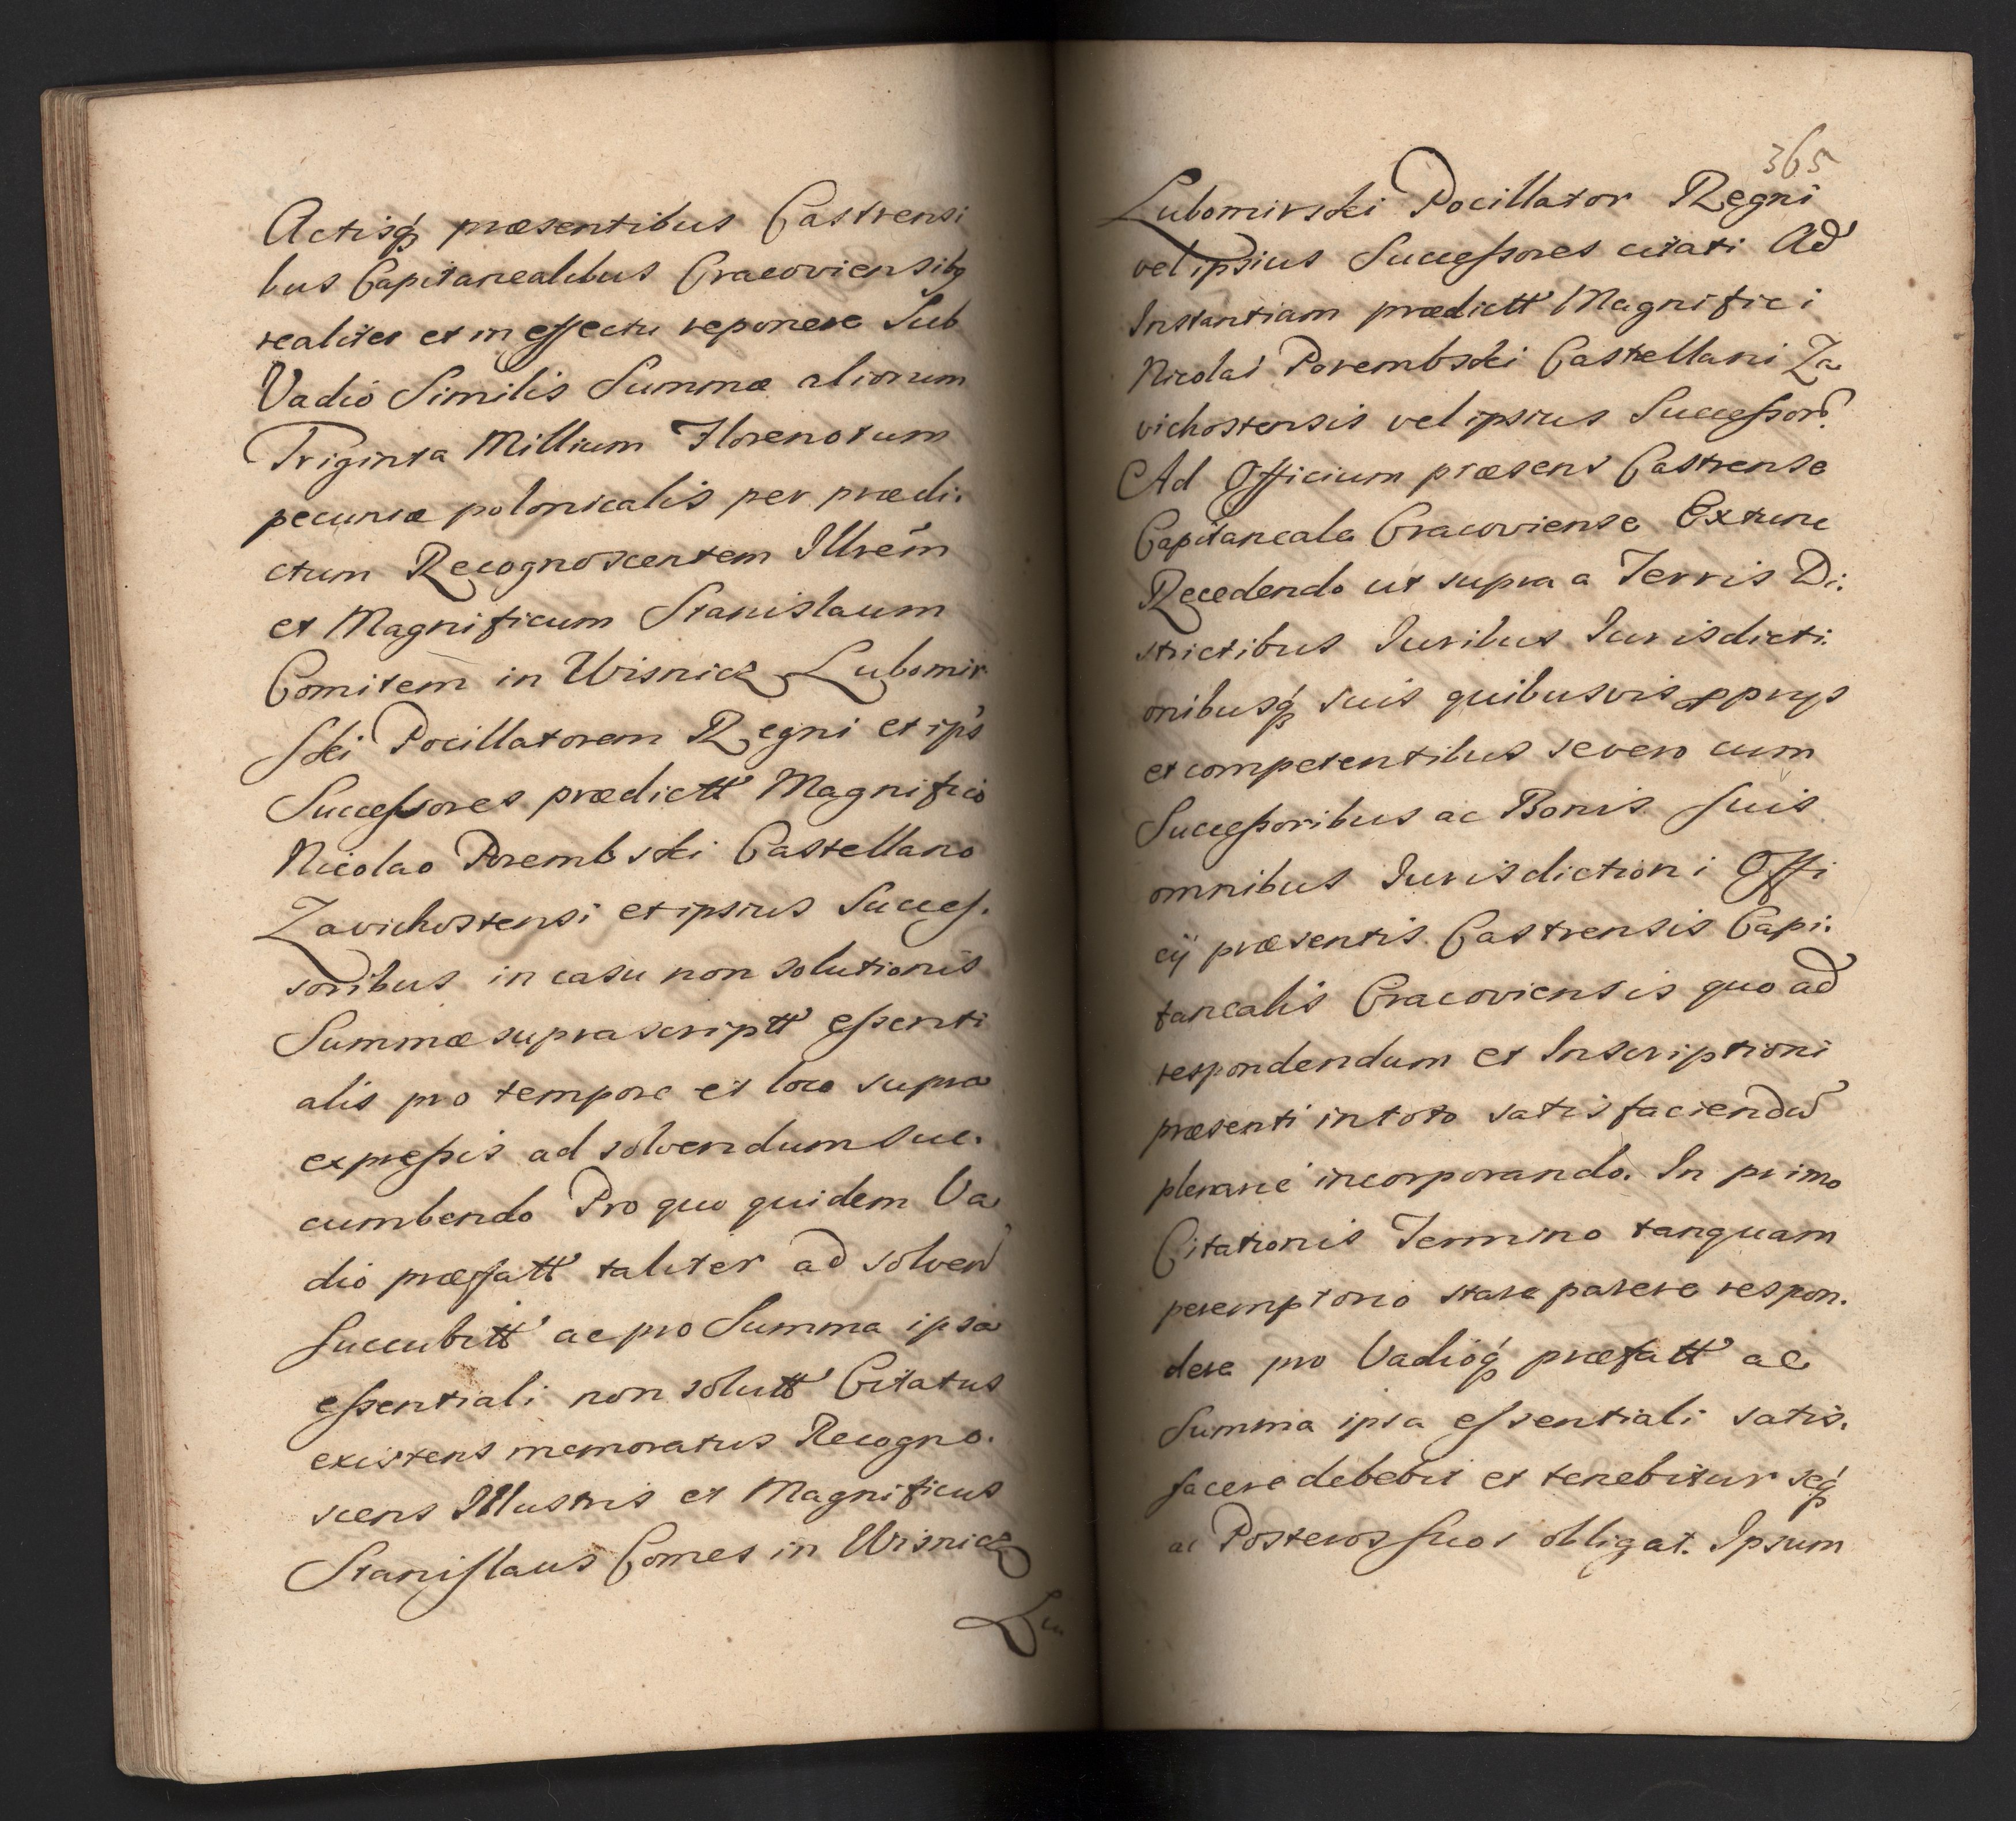 Actisq́ præsentibus Castrensi
bus Capitanealibus Cracoviensibq
realiter et in effectu reponere Sub
Vadio Similis Summæ aliorum
Triginta Millium Florenorum
pecuniæ polonicalis per prædi.
ctum Recognoscentem Illrēm
et Magnificum Stanislaum
Comitem in Wisnicz Lubomir
ski Pocillatorem Regni et ip's
Successores prædictt Magnifico
Nicolao Porembski Castellano
Zavichostensi et ipsius Succes.
soribus in casu non solutionis
Summæ suprascriptt essenti
alis pro tempore et loco supra
expressis ad solvendum suc.
cumbendo Pro quo quidem Va
dio præfatt taliter ad solven
succubitt ac pro Summa ipsa
essentiali non solutt Citatus
existens memoratus Recogno.
scens Illustris et Magnificus
Stanislaus Comes in Wisnicz
Lu
365
Lubomirski Pocillator Regni
vel ipsius Successores citati Ad
Instantiam prædictt Magnifici
Nicolai Porembski Castellani Za
vichostensis vel ipsius Successor
Ad Officium præsens Castrense
Capitaneale Cracoviense Extunc
Recedendo ut supra a Terris Di.
strictibus Iuribus Iurisdicti.
onibusq́ suis quibusvis pprijs
et competentibus se vero cum
Successoribus ac Bonis suis
omnibus Iurisdictioni Offi
cij præsentis Castrensis Capi.
tanealis Cracoviensis quo ad
respondendum et Inscriptioni
præsenti in toto satis faciendū
plenarie incorporando. In primo
Citationis Termino tanquam
peremptorio stare parere respon.
dere pro Vadioq́ præfatt ac
Summa ipsa essentiali satis.
facere debebit et tenebitur seq́
ac Posteros suos obligat. Ipsum